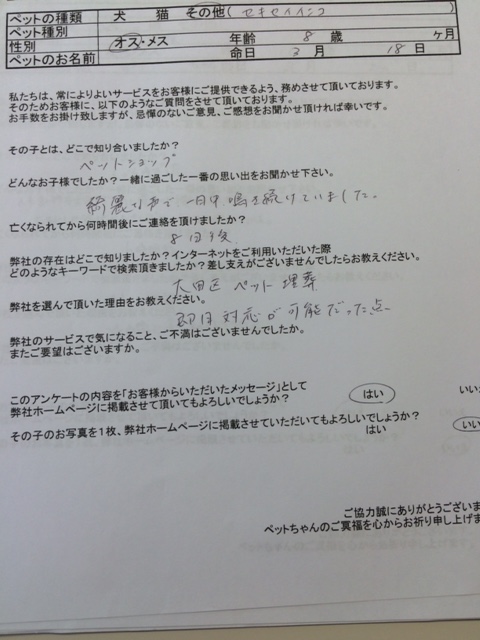 ペットの種類 犬 猫 その他( セキセイインコ
ペット種別
性別 オス・メス 年齢 8 歳 ヶ月
ペットのお名前 命日 3 月 18 日
私たちは、常によりよいサービスをお客様にご提供できるよう、務めさせて頂いております。
そのためお客様に、以下のようなご質問をさせて頂いております。
お手数をお掛け致しますが、忌憚のないご意見、ご感想をお聞かせ頂ければ幸いです。
その子とは、どこで知り合いましたか?
ペットショップ
どんなお子様でしたか?一緒に過ごした一番の思い出をお聞かせ下さい。
綺麗な声で 一日中 鳴き続けていました。
亡くなられてから何時間後にご連絡を頂けましたか?
8日後
弊社の存在はどこで知りましたか?インターネットをご利用いただいた際
どのようなキーワードで検索頂きますか?差し支えがございませんでしたらお教えください。
大田区 ペット 埋葬
弊社を選んで頂いた理由をお教えください。
即日対応が可能だった点
弊社のサービスで気になること、ご不満はございませんでしたか。
またご要望はございますか。
このアンケートの内容を「お客様からいただいたメッセージ」として
弊社ホームページに掲載させて頂いてもよろしいでしょうか? はい いい
その子のお写真を1枚、弊社ホームページに掲載させていただいてもよろしいでしょうか?
はい いい
ご協力誠にありがとうございま
ペットちゃんのご冥福を心からお祈り申し上げま